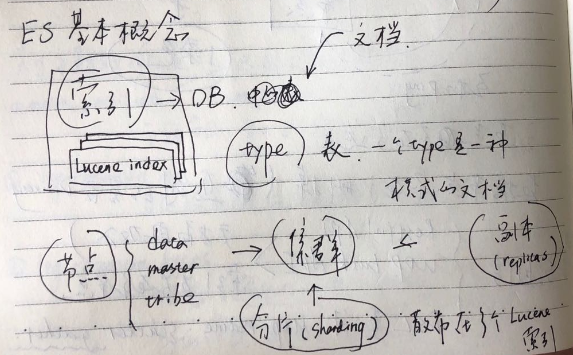 ES 基本概念
文档.
索引 → DB.
Lucene index
type 表. 一个type是一种
模式的文档
节点 { data
master
tribe
→ 集群 ← 副本
(replicas)
分片 (Sharding) 散布在多个 Lucene
索引